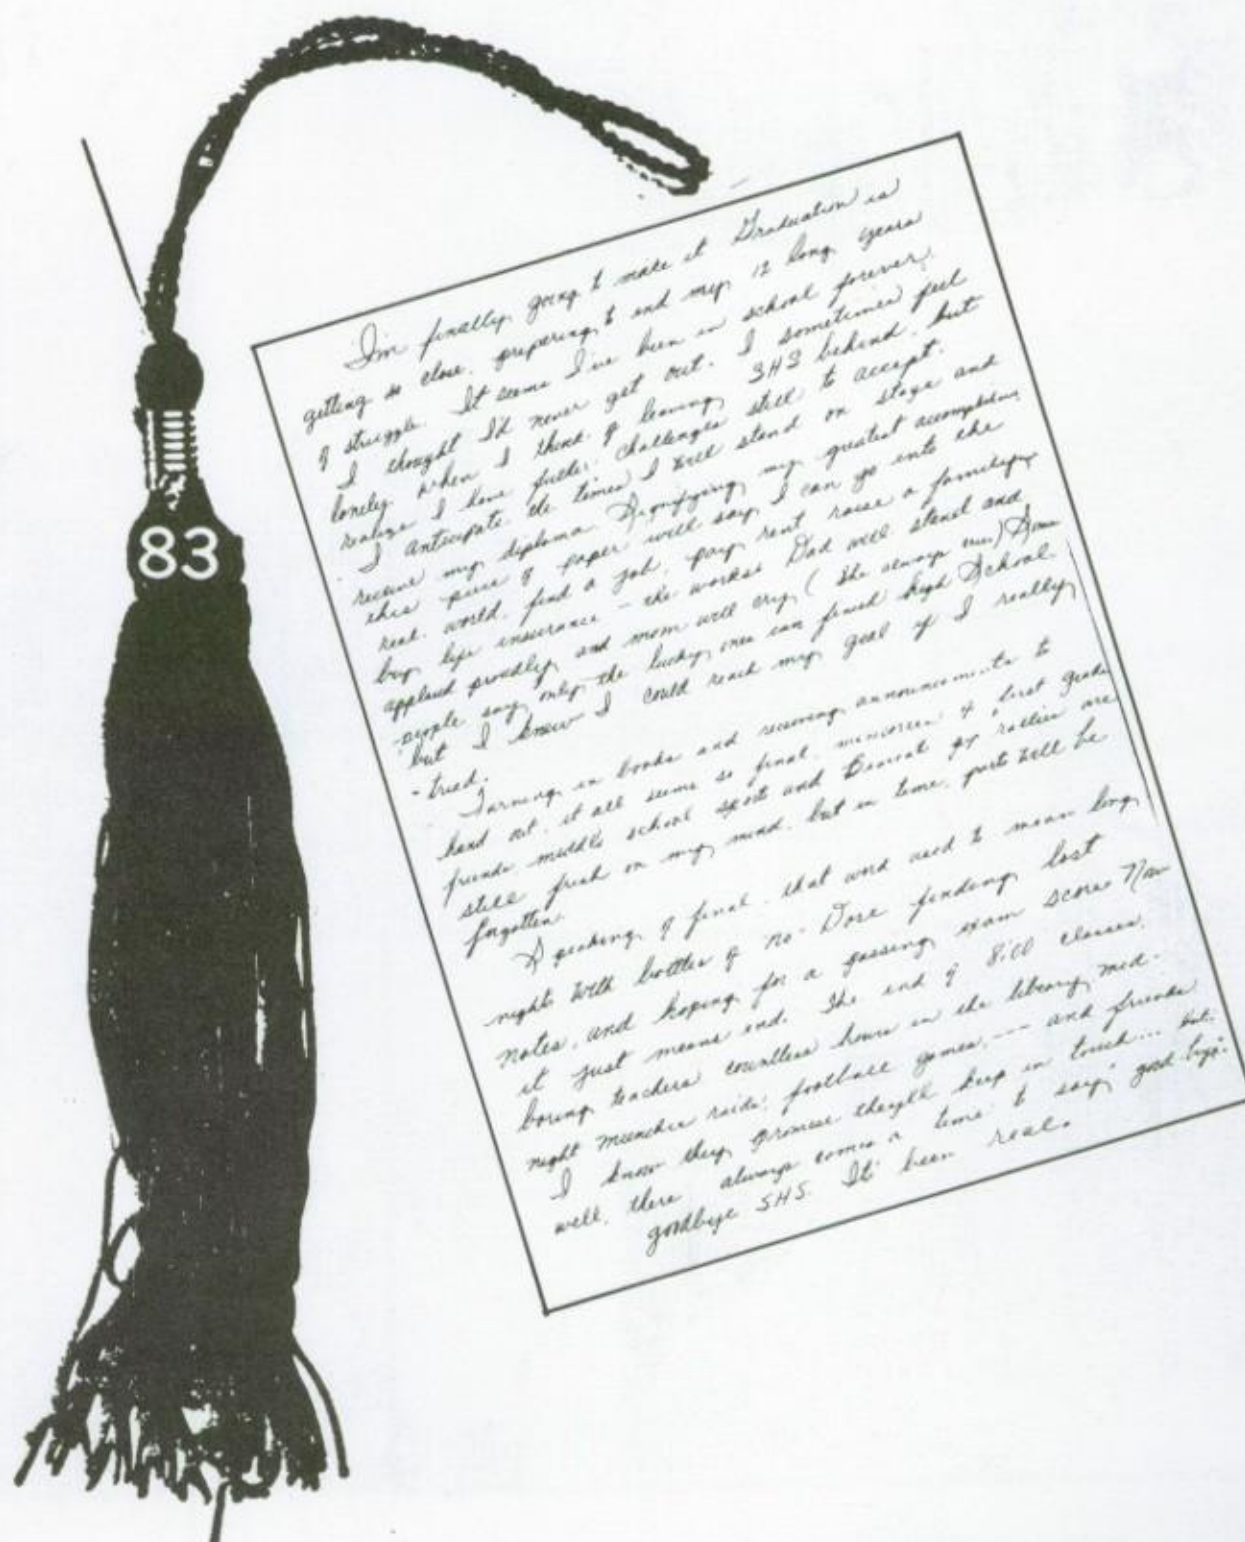 83
I'm finally going to make it Graduation is
getting so close. preparing to end my 12 long years
of struggle. It seems I've been in school forever.
I thought I'd never get out. I sometimes feel
lonely when I think of leaving SHS behind. but
realize I have further challenges still to accept.
I anticipate the times I will stand on stage and
receive my diploma. Signifying my greatest
this piece of paper will say I can go into the
real world. find a job, pay rent raise a family
buy life insurance - the works. Dad will stand and
applaud proudly and mom will cry (she always
people say only the lucky ones can finish high School
but I knew I could reach my goal if I really
- tried.
Turning in books and receiving announcements to
hand out. it all seems so final. memories of first grade
friends middle school spots and Bearcat rallies are
still fresh on my mind. but in time. parts will be
forgotten.
Speaking of final. that word used to mean long
nights with bottles of no-Doze finding lost
notes, and hoping for a passing exam score. Now
it just means end. The end of 8:00 classes.
boring teachers countless hours in the library, mid-
night munchie raids, football games, --- and friends
I know they promise they'll keep in touch... but.
well, there always comes a time to say "good-bye".
goodbye SHS. It's been real.